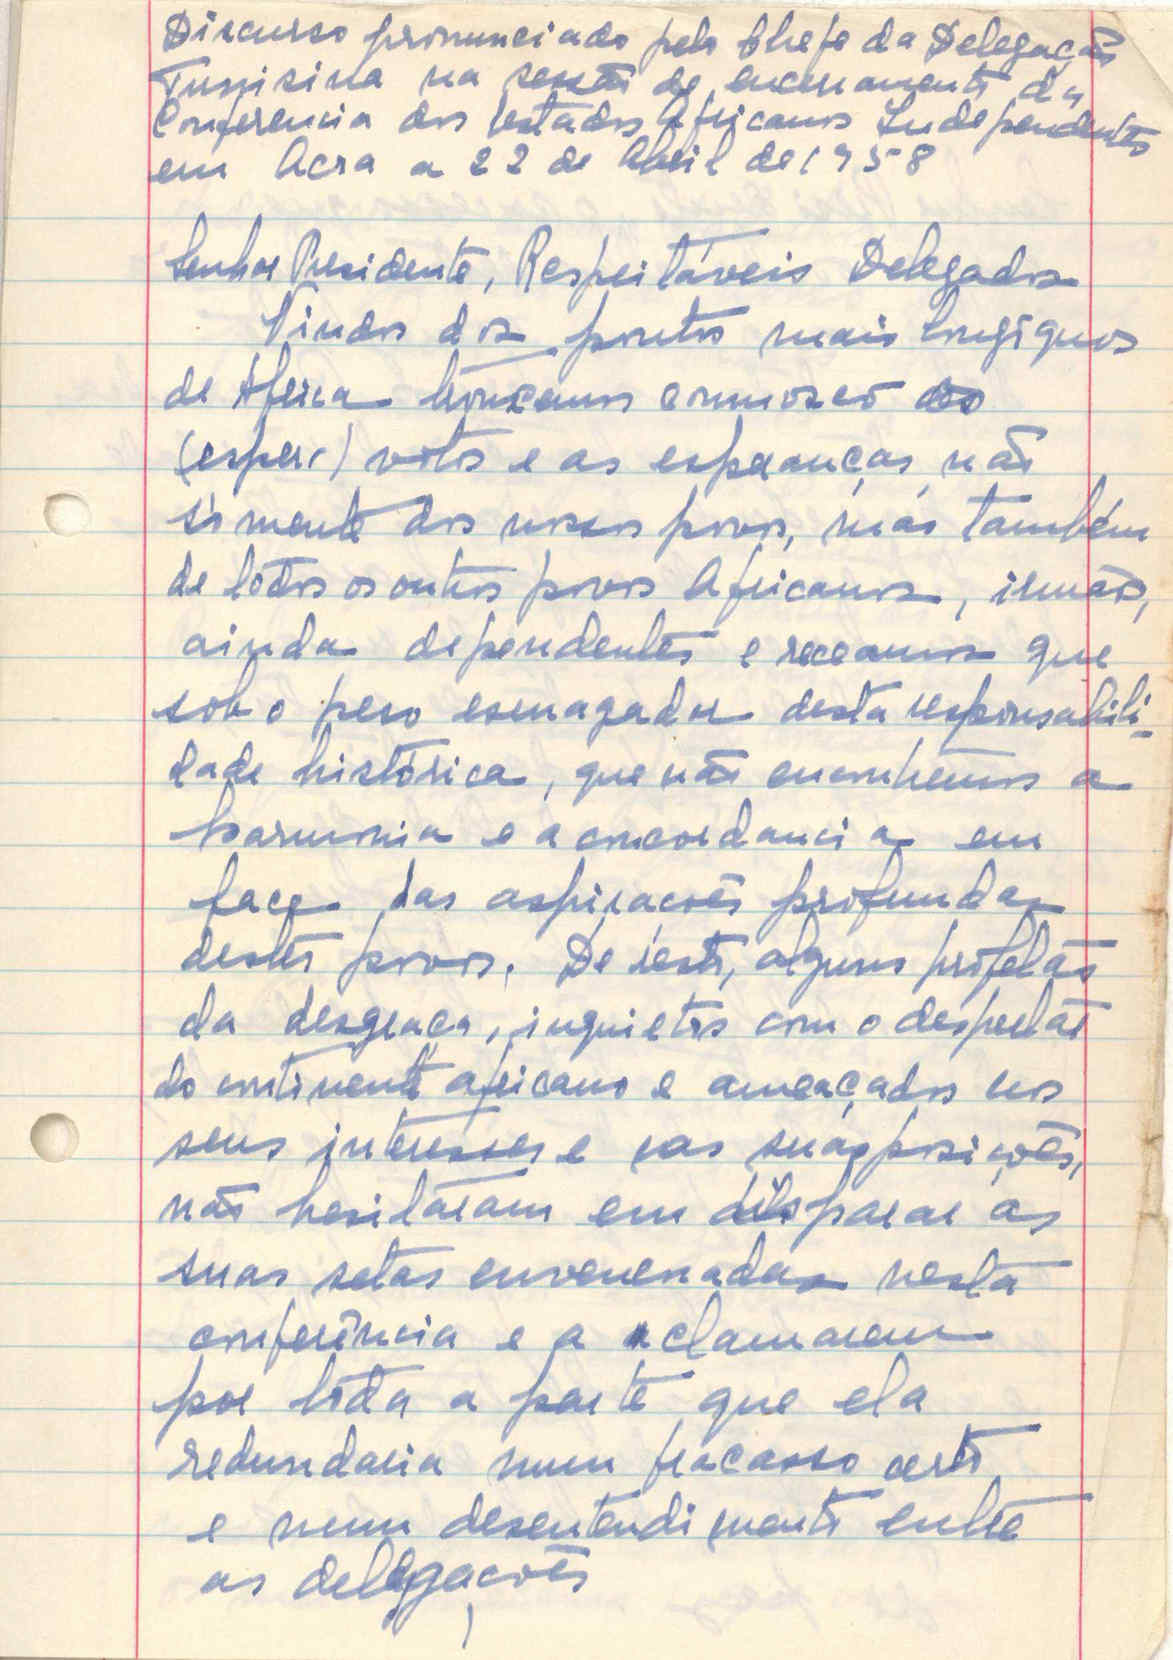 Discurso pronunciado pelo Chefe da Delegação
Tunisina na sessão de encerramento da
Conferencia dos Estados Africanos Independentes
em Acra a 22 de Abril de 1958
Senhor Presidente, Respeitáveis Delegados
Vindos dos pontos mais longíquos
de África trouxemos connosco os
(esper) votos e as esperanças, não
sòmente dos nossos povos, más também
de todos os outros povos Africanos, irmãos,
ainda dependentes e receamos que
sob o peso esmagador desta responsabili-
dade histórica, que não encontremos a
harmonia e a concordancia em
face das aspirações profundas
destes povos. De resto, alguns profetas
da desgraça, inquietos com o despertar
do continente africano e ameaçados nos
seus interesses e nas suas posições,
não hesitaram em disparar as
suas setas envenenadas nesta
conferência e a clamarem
por toda a parte que ela
redundaria num fracasso certo
e num desentendimento entre
as delegações